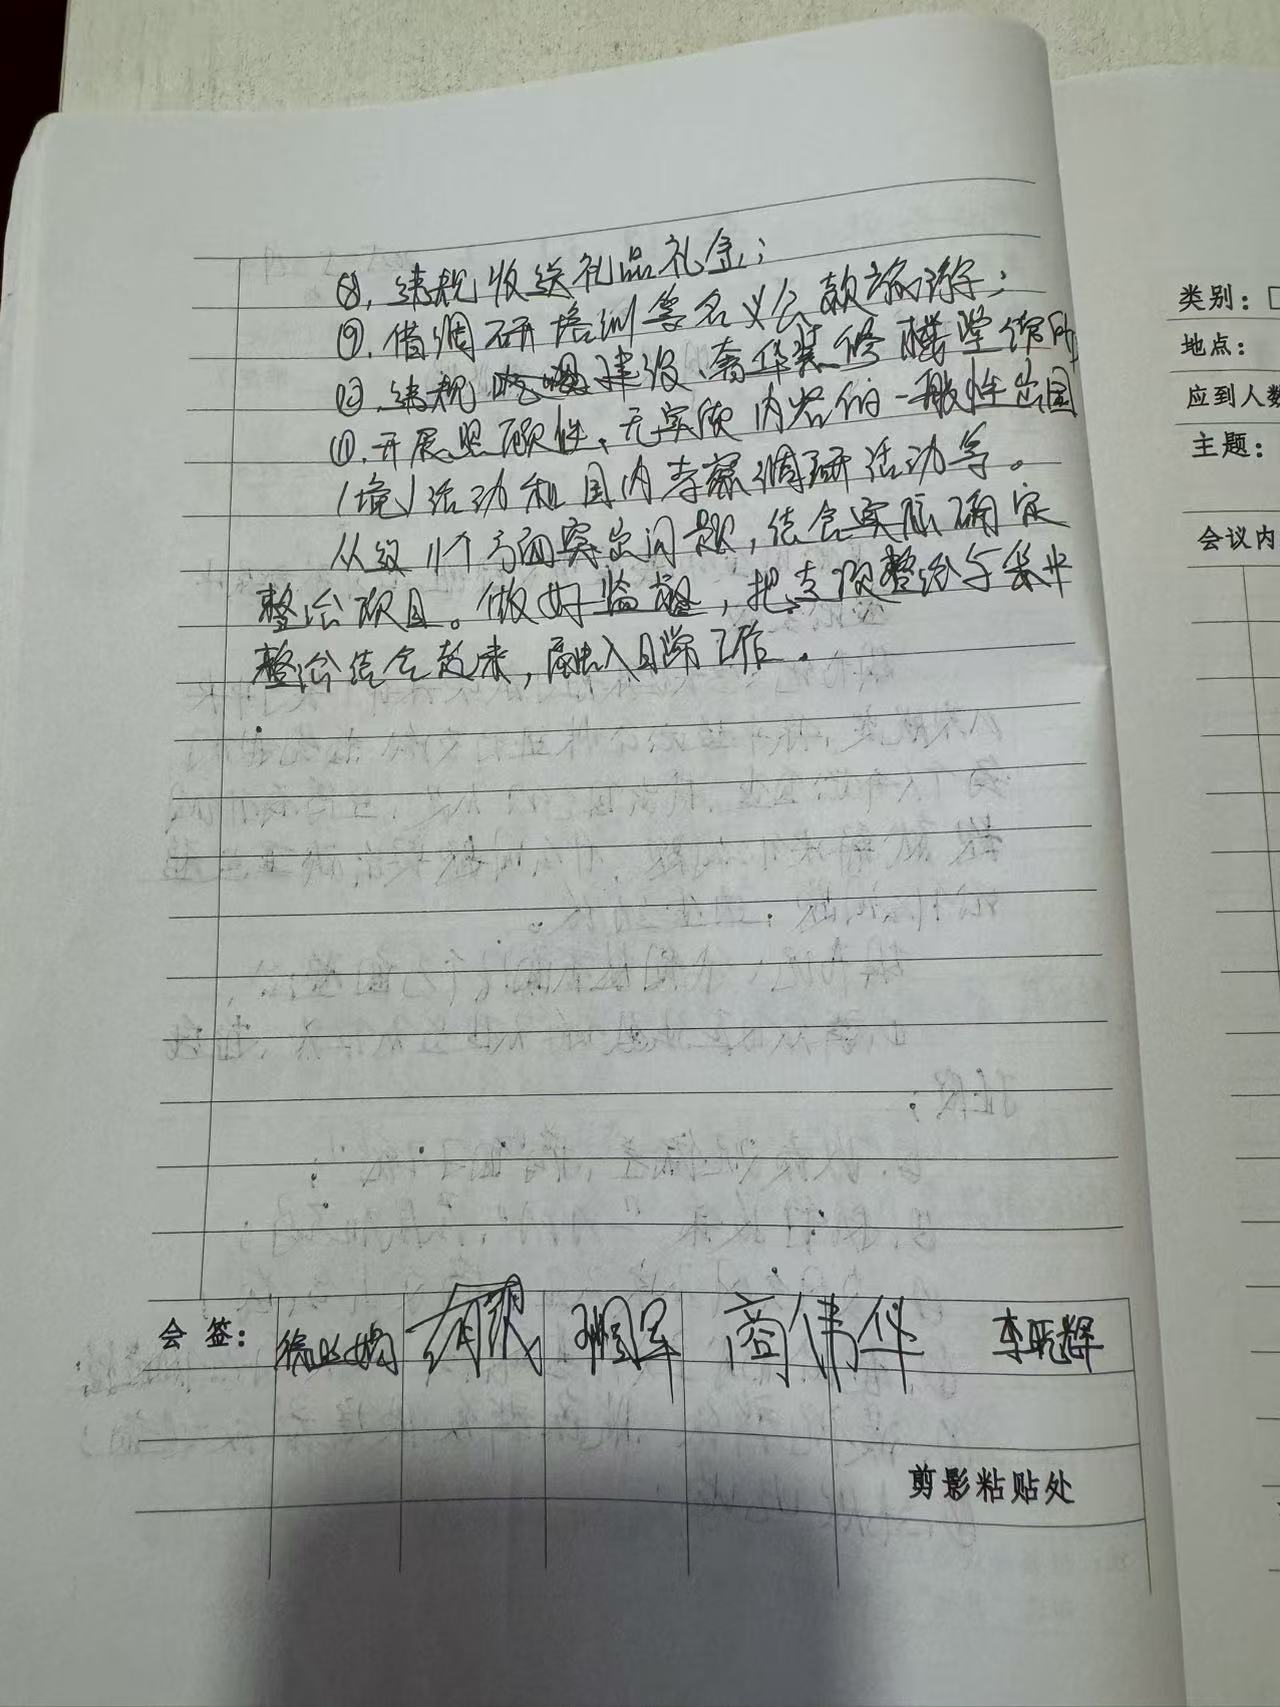 ⑧.违规收送礼品礼金；
⑨.借调研培训等名义公款旅游；
⑩.违规建设、奢华装修楼堂馆所
⑪.开展照顾性、无实质内容的一般性出国
(境)活动和国内考察调研活动等。
从这11个方面突出问题，结合实际确定
整治项目。做好监督，把专项整治与集中
整治结合起来，融入日常工作。
会 签：
商伟华 李晓辉
剪影粘贴处
类别：
地点：
应到人数
主题：
会议内